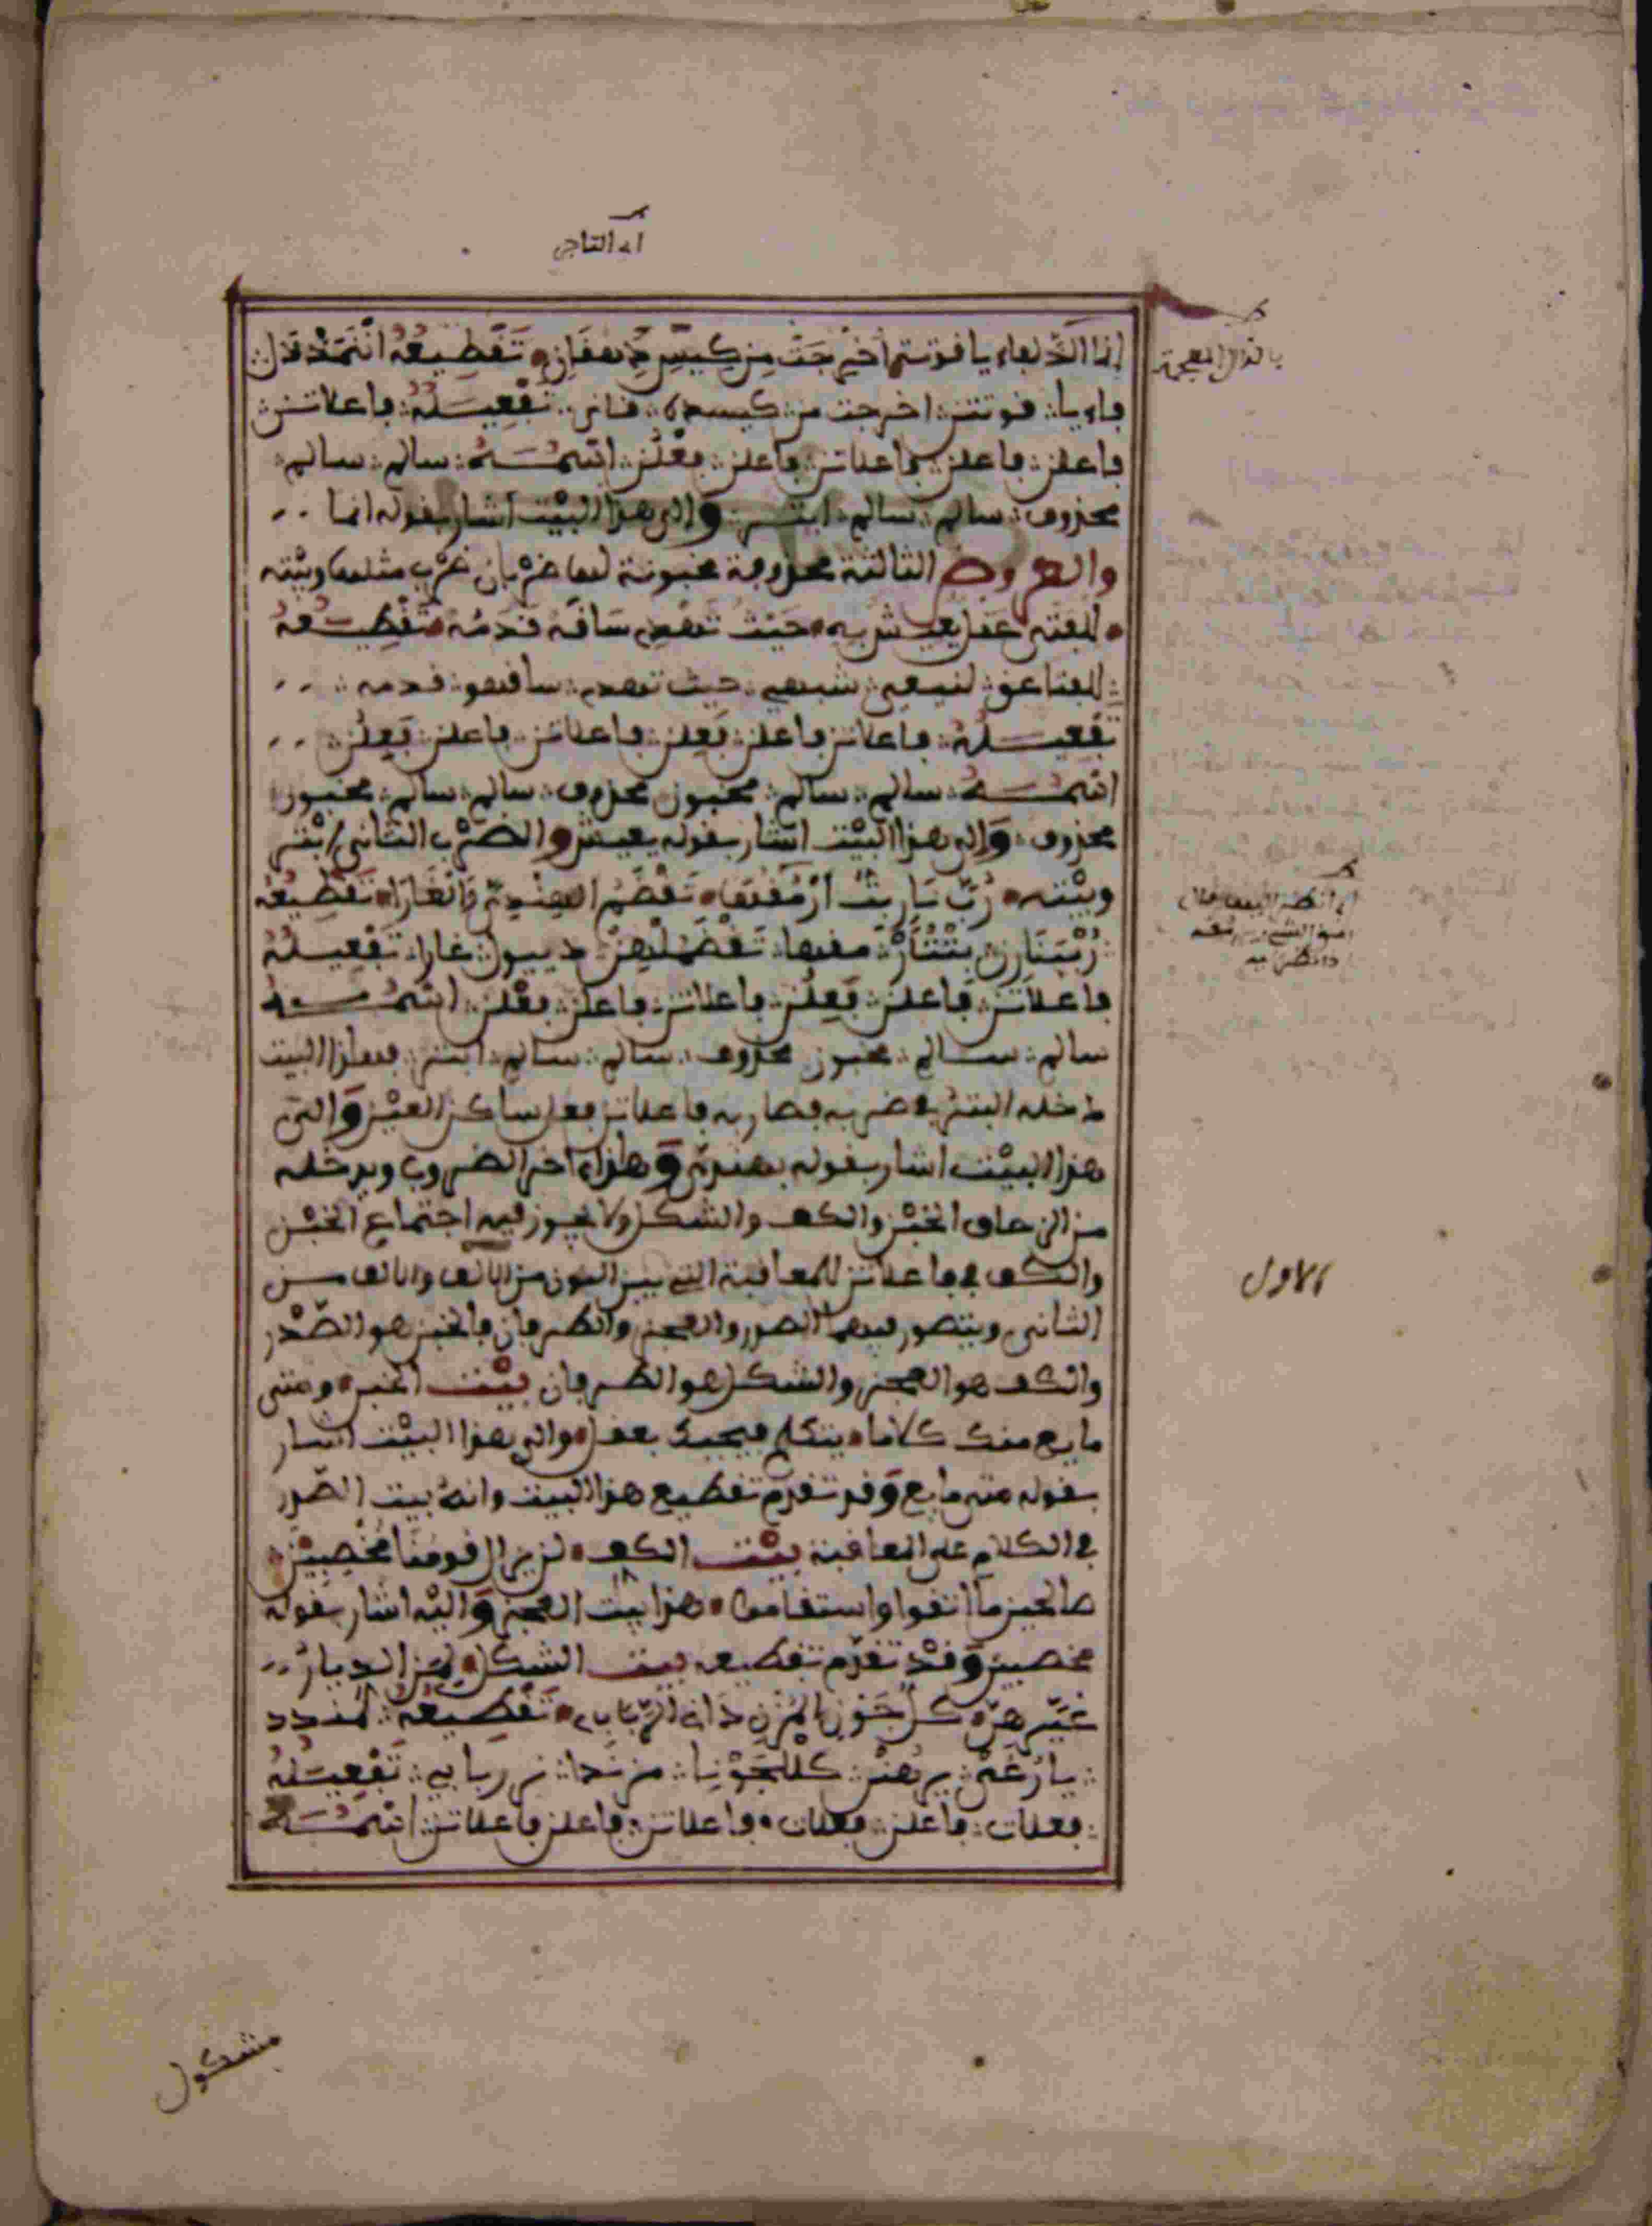 اي التاجر
إنما الذلفاء ياقوتة أخرجت من كيس دهقان تقطيعه انتمذذل
فاءيا ∴ قوتتن ∴ اخرجت من ∴ كيسده ∴ قاني ∴ تفعيله ∴ فاعلاتن ∴
بالذال المعجمة
فاعلن ∴ فاعلن ∴ فاعلاتن ∴ فاعلن ∴ فعلن ∴ اسمه ∴ سالم ∴ سالم ∴
محذوف ∴ سالم ∴ سالم ∴ ابتر ∴ والى هذا البيت اشار بقوله انما
والعروض الثالثة محذوفة مخبونة لها ضربان ضرب مثلها وبيته
للفتى عقل يعيش به حيث تهدي ساقه قدمه تقطيعه
للفتاعق ∴ لنيعي ∴ شبهي ∴ حيث تهدي ∴ ساقهو ∴ قدمه ∴
تفعيله ∴ فاعلاتن فاعلن ∴ فعلن ∴ فاعلاتن ∴ فاعلن ∴ فعلن ∴
اسمه ∴ سالم ∴ سالم ∴ مخبون محذوف ∴ سالم ∴ سالم ∴ مخبون
محذوف ∴ والى هذا البيت اشار بقوله يعيش والضرب الثاني ابتر
وبيته رب نار بت أرمقها تقضم الهندي والغارا تقطيعه
ربنارن بتتأر ∴ مقها ∴ تقضملهن ∴ دييول ∴ غارا ∴ تفعيله
فاعلاتن ∴ فاعلن ∴ فعلن ∴ فاعلاتن ∴ فاعلن ∴ فعلن ∴ اسمه
سالم ∴ سالم ∴ مخبون محذوف ∴ سالم ∴ سالم ∴ ابتر ∴ فهذا البيت
دخله البتر في ضربه فصار به فاعلاتن فعل ساكن العين والى
هذا البيت اشار بقوله بهندي وهذا آخر الضروب ويدخله
من الزحاف الخبن والكف والشكل ولا يجوز فيه اجتماع الخبن
والكف في فاعلاتن للمعاقبة التي بين النون من الالف والالف من
الاول
الثاني ويتصور فيهما الصدر والعجز والطرفان فالخبن هو الصدر
والكف هو العجز والشكل هو الطرفان بيت الخبن ومتى
مايع منك كلاما يتكلم فيجبك بعقل والى هذا البيت اشار
بقوله متى مايع وقد تقدم تقطيع هذا البيت وانه بيت الصدر
في الكلام على المعاقبة بيت الكف لن يزال قومنا مخصبين
صالحين ما اتقوا واستقاموا هذا بيت العجز واليه اشار بقوله
مخصبين وقد تقدم تقطيعه بيت الشكل لمن الديار
غيرهن كل جون المزن داني الرباب تقطيعه لمندد
∴ يارغي ∴ يرهنن ∴ كللجونل ∴ مزندا ∴ نرربابي ∴ تفعيله
∴ فعلات ∴ فاعلن ∴ فعلات فاعلاتن ∴ فاعلن فاعلاتن ∴ اسمه
مشكول